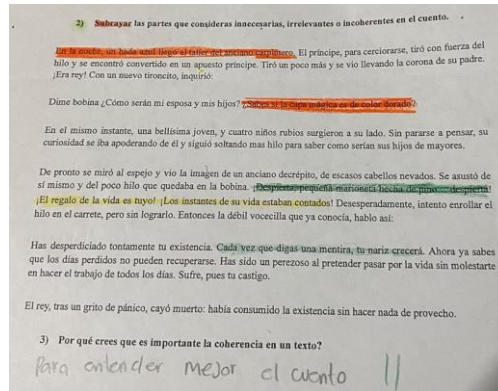 2) Subrayar las partes que consideras innecesarias, irrelevantes o incoherentes en el cuento.
En la noche, un hada azul llegó al taller del anciano carpintero. El príncipe, para cerciorarse, tiró con fuerza del
hilo y se encontró convertido en un apuesto príncipe. Tiró un poco más y se vio llevando la corona de su padre.
¡Era rey! Con un nuevo tironcito, inquirió:
Dime bobina ¿Cómo serán mi esposa y mis hijos? ¿Sabes si la capa mágica es de color dorado?
En el mismo instante, una bellísima joven, y cuatro niños rubios surgieron a su lado. Sin pararse a pensar, su
curiosidad se iba apoderando de él y siguió soltando mas hilo para saber como serían sus hijos de mayores.
De pronto se miró al espejo y vio la imagen de un anciano decrépito, de escasos cabellos nevados. Se asustó de
sí mismo y del poco hilo que quedaba en la bobina. ¡Despierta, pequeña marioneta hecha de pino... despierta!
¡El regalo de la vida es tuyo! ¡Los instantes de su vida estaban contados! Desesperadamente, intento enrollar el
hilo en el carrete, pero sin lograrlo. Entonces la débil vocecilla que ya conocía, hablo así:
Has desperdiciado tontamente tu existencia. Cada vez que digas una mentira, tu nariz crecerá. Ahora ya sabes
que los días perdidos no pueden recuperarse. Has sido un perezoso al pretender pasar por la vida sin molestarte
en hacer el trabajo de todos los días. Sufre, pues tu castigo.
El rey, tras un grito de pánico, cayó muerto: había consumido la existencia sin hacer nada de provecho.
3) Por qué crees que es importante la coherencia en un texto?
Para entender mejor el cuento